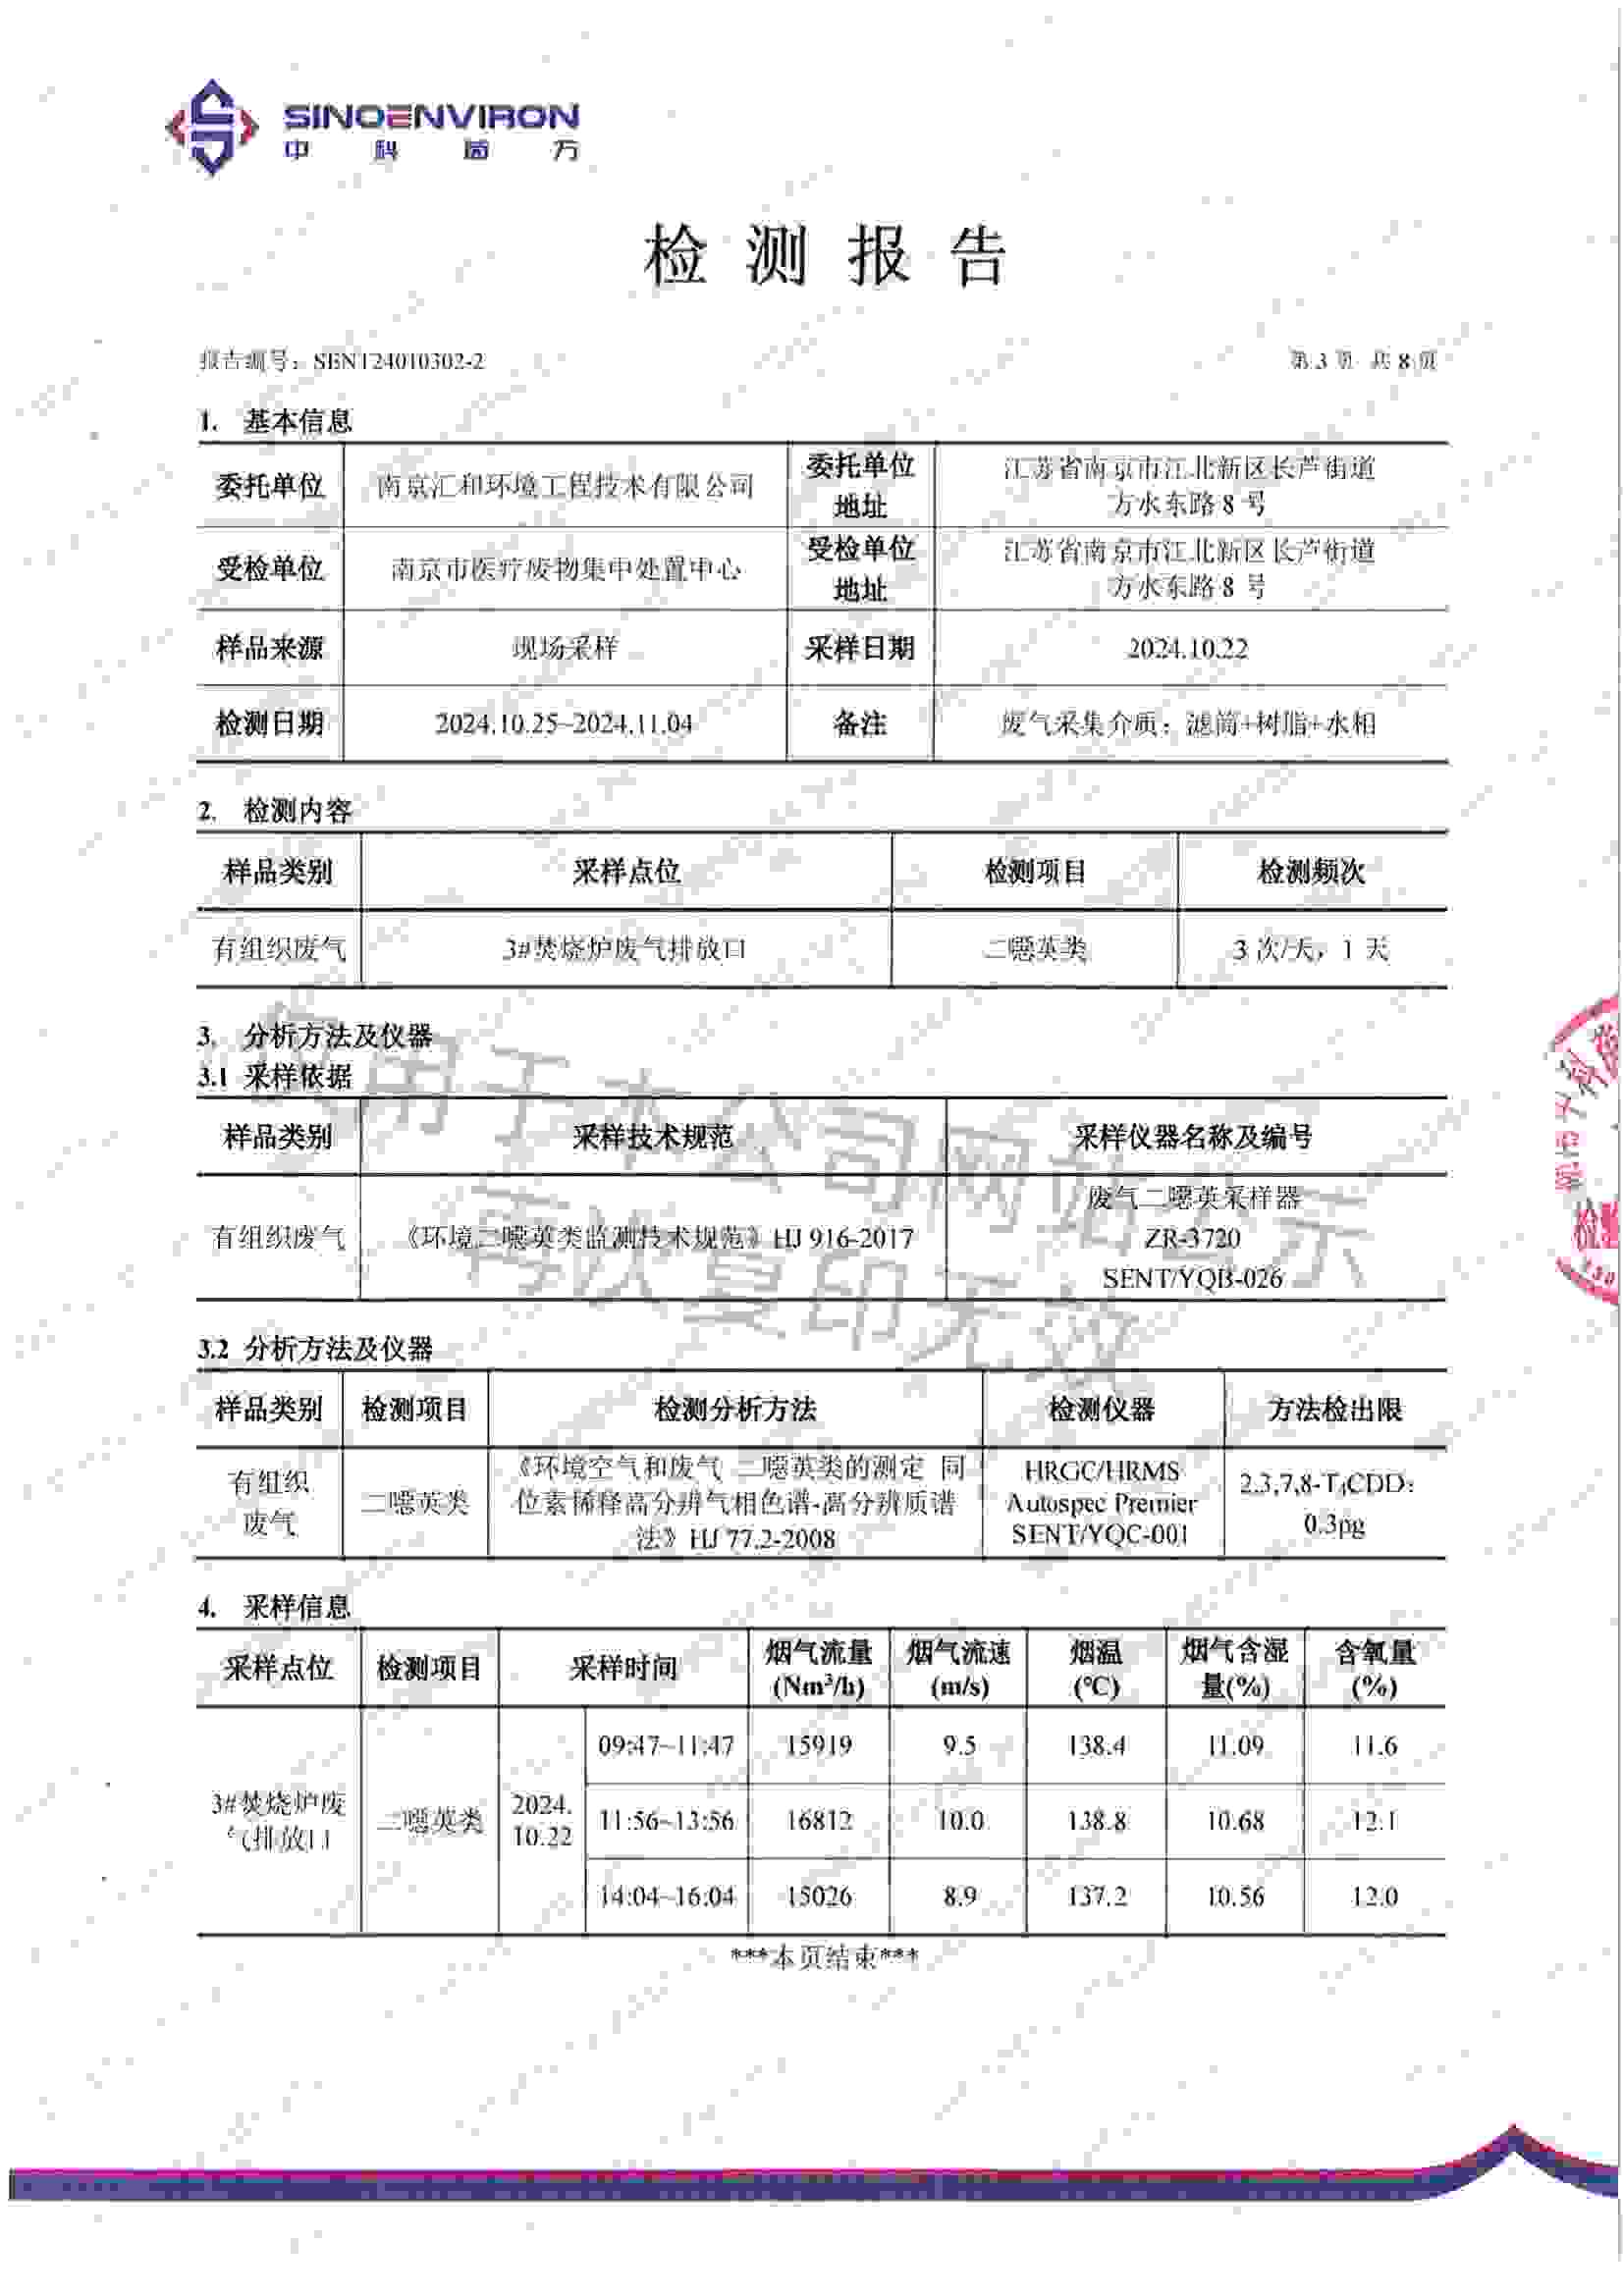 SINOENVIRON
中 科 盾 方
检 测 报 告
报告编号：SENT24010302-2 第 3 页 共 8 页
1. 基本信息
委托单位 南京汇和环境工程技术有限公司 委托单位地址 江苏省南京市江北新区长芦街道
方水东路 8 号
受检单位 南京市医疗废物集中处置中心 受检单位地址 江苏省南京市江北新区长芦街道
方水东路 8 号
样品来源 现场采样 采样日期 2024.10.22
检测日期 2024.10.25~2024.11.04 备注 废气采集介质：滤筒+树脂+水相
2. 检测内容
样品类别 采样点位 检测项目 检测频次
有组织废气 3#焚烧炉废气排放口 二噁英类 3 次/天，1 天
3. 分析方法及仪器
3.1 采样依据
样品类别 采样技术规范 采样仪器名称及编号
有组织废气 《环境二噁英类监测技术规范》HJ 916-2017 废气二噁英采样器
ZR-3720
SENT/YQB-026
3.2 分析方法及仪器
样品类别 检测项目 检测分析方法 检测仪器 方法检出限
有组织
废气 二噁英类 《环境空气和废气 二噁英类的测定 同
位素稀释高分辨气相色谱-高分辨质谱
法》HJ 77.2-2008 HRGC/HRMS
Autospec Premier
SENT/YQC-001 2,3,7,8-T4CDD：
0.3pg
4. 采样信息
采样点位 检测项目 采样时间 烟气流量(Nm³/h) 烟气流速(m/s) 烟温(℃) 烟气含湿量(%) 含氧量(%)
3#焚烧炉废
气排放口 二噁英类 2024.
10.22
09:47~11:47 15919 9.5 138.4 11.09 11.6
11:56~13:56 16812 10.0 138.8 10.68 12.1
14:04~16:04 15026 8.9 137.2 10.56 12.0
***本页结束***
仅用于本公司网站公示
再次复印无效